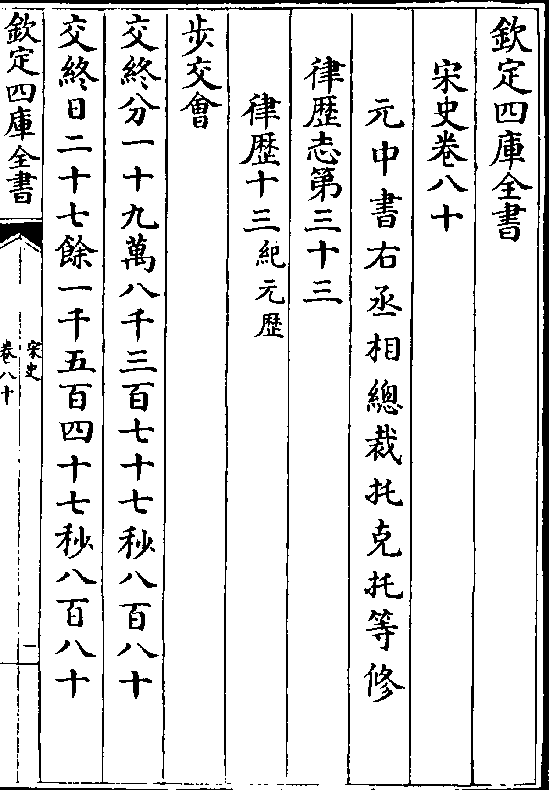 欽定四庫全書
宋史卷八十
元中書右丞相總裁托克托等修
律歴志第三十三
律歴十三紀元歴
步交會
交終分一十九萬八千三百七十七秒八百八十
交終日二十七餘一千五百四十七秒八百八十
欽定四庫全書
宋史
卷八十
一